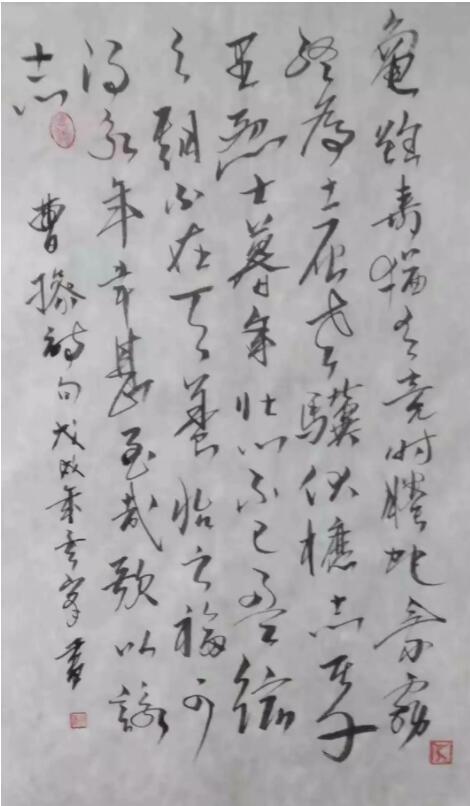 龜雖壽猶有竟時騰蛇乘霧
終為土灰老驥伏櫪志在千
里烈士暮年壯心不已盈縮
之期不在天養怡之福可
得永年幸甚至哉歌以詠
志
曹操詩句戊戌年書